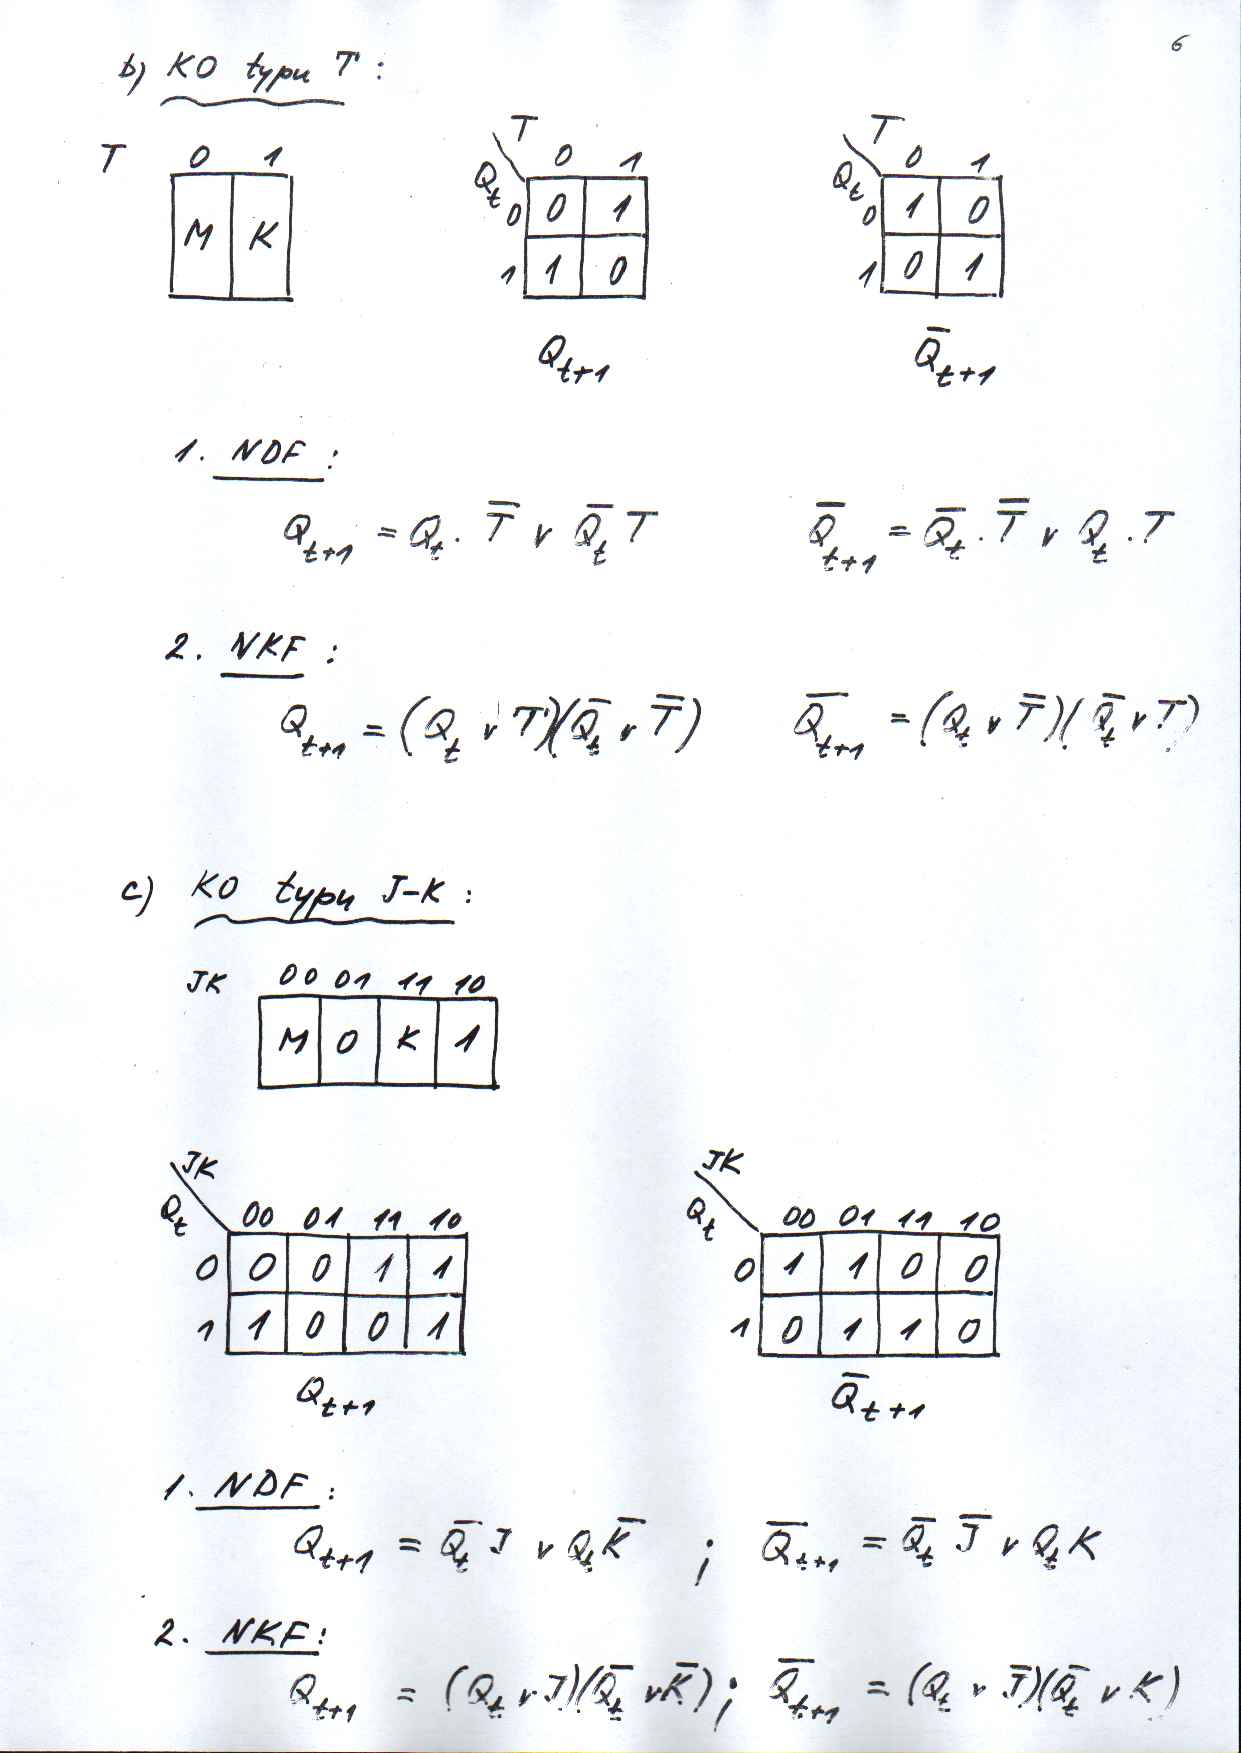 6
b) KO typu T :
T 0 1
M K
T
Q_t 0 1
0 0 1
1 1 0
Q_{t+1}
T
Q_t 0 1
0 1 0
1 0 1
Q̅_{t+1}
1. NDF :
Q_{t+1} = Q_t . T̅ v Q̅_t T    Q̅_{t+1} = Q̅_t . T̅ v Q_t . T
2. NKF :
Q_{t+1} = (Q_t v T)(Q̅_t v T̅)    Q̅_{t+1} = (Q_t v T̅)(Q̅_t v T)
c) KO typu J-K :
JK 00 01 11 10
M 0 K 1
JK
Q_t 00 01 11 10
0 0 0 1 1
1 1 0 0 1
Q_{t+1}
JK
Q_t 00 01 11 10
0 1 1 0 0
1 0 1 1 0
Q̅_{t+1}
1. NDF :
Q_{t+1} = Q̅_t J v Q_t K̅ ; Q̅_{t+1} = Q̅_t J̅ v Q_t K
2. NKF :
Q_{t+1} = (Q_t v J)(Q̅_t v K̅) ; Q̅_{t+1} = (Q_t v J̅)(Q̅_t v K)